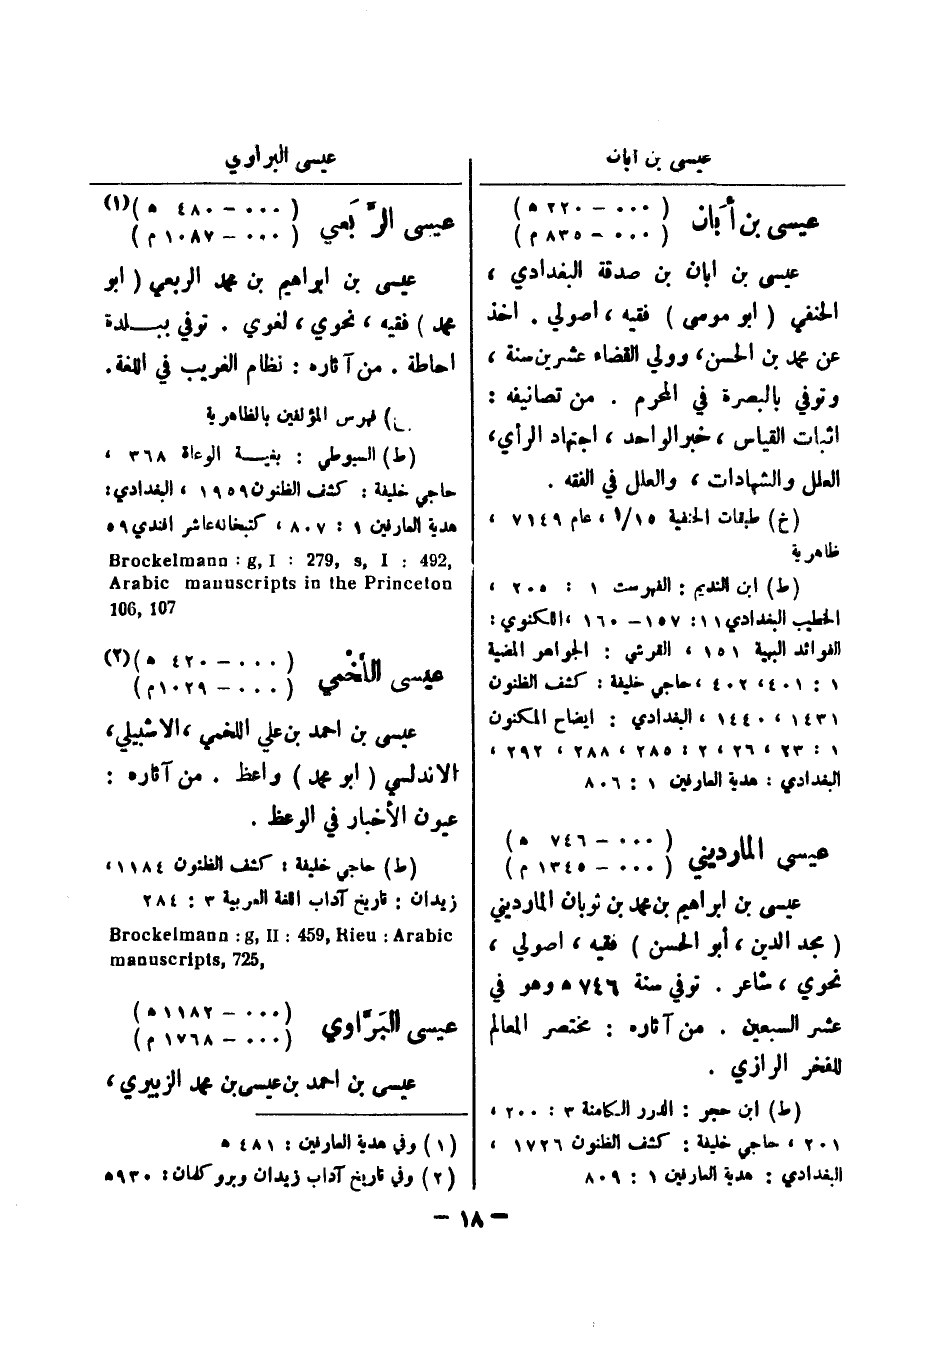 عيسى بن ابان
عيسى بن أبان ( ٠٠٠ – ٢٢٠ ه )
( ٠٠٠ – ٨٣٥ م )
عيسى بن ابان بن صدقة البغدادي ،
الحنفي ( ابو موسى ) فقيه ، اصولي . اخذ
عن محمد بن الحسن، وولي القضاء عشرين سنة ،
وتوفي بالبصرة في المحرم . من تصانيفه :
اثبات القياس ، خبر الواحد ، اجتهاد الرأي،
العلل والشهادات ، والعلل في الفقه .
(خ) طبقات الحنفية ١/١٥ ، عام ٧١٤٩ ،
ظاهرية
(ط) ابن النديم : الفهرست ١ : ٢٠٥ ،
الخطيب البغدادي ١١: ١٥٧ – ١٦٠ ،اللكنوي :
الفوائد البهية ١٥١ ، القرشي : الجواهر المضية
١ : ٤٠١، ٤٠٢ ، حاجي خليفة : كشف الظنون
١٤٣١ ، ١٤٤٠ ، البغدادي : ايضاح المكنون
١ : ٢٣ ، ٢٦ ، ٢ : ٢٨٥ ، ٢٨٨ ، ٢٩٢ ،
البغدادي : هدية العارفين ١ : ٨٠٦
عيسى المارديني ( ٠٠٠ – ٧٤٦ ه )
( ٠٠٠ – ١٣٤٥ م )
عيسى بن ابراهيم بن محمد بن ثوبان المارديني
( مجد الدين ، أبو الحسن ) فقيه ، اصولي ،
نحوي ، شاعر . توفي سنة ٧٤٦ ه وهو في
عشر السبعين . من آثاره : مختصر المعالم
للفخر الرازي .
(ط) ابن حجر : الدرر الكامنة ٣ : ٢٠٠ ،
٢٠١ ، حاجي خليفة : كشف الظنون ١٧٢٦ ،
البغدادي : هدية العارفين ١ : ٨٠٩
عيسى البراوي
عيسى الرَّبَعي ( ٠٠٠ – ٤٨٠ ه )(١)
( ٠٠٠ – ١٠٨٧ م )
عيسى بن ابراهيم بن محمد الربعي ( ابو
محمد ) فقيه ، نحوي ، لغوي . توفي ببلدة
احاطة . من آثاره : نظام الغريب في اللغة.
) فهرس المؤلفين بالظاهرية
(ط) السيوطي : بغية الوعاة ٣٦٨ ،
حاجي خليفة : كشف الظنون ١٩٥٩ ، البغدادي:
هدية العارفين ١ : ٨٠٧ ، كتبخانه عاشر افندي ٥٩
Brockelmann : g, I : 279, s, I : 492,
Arabic manuscripts in the Princeton
106, 107
عيسى اللَّخْمي ( ٠٠٠ – ٤٢٠ ه )(٢)
( ٠٠٠ – ١٠٢٩م )
عيسى بن احمد بن علي اللخمي ،الاشبيلي،
الاندلسي ( ابو محمد ) واعظ . من آثاره :
عيون الأخبار في الوعظ .
(ط) حاجي خليفة : كشف الظنون ١١٨٤،
زيدان : تاريخ آداب اللغة العربية ٣ : ٢٨٤
Brockelmann : g, II : 459, Rieu : Arabic
manuscripts, 725,
عيسى البَرَّاوي ( ٠٠٠ – ١١٨٢ ه )
( ٠٠٠ – ١٧٦٨ م )
عيسى بن احمد بن عيسى بن محمد الزبيري ،
(١) وفي هدية العارفين : ٤٨١ ه
(٢) وفي تاريخ آداب زيدان وبروكلمان : ٩٣٠ه
– ١٨ –